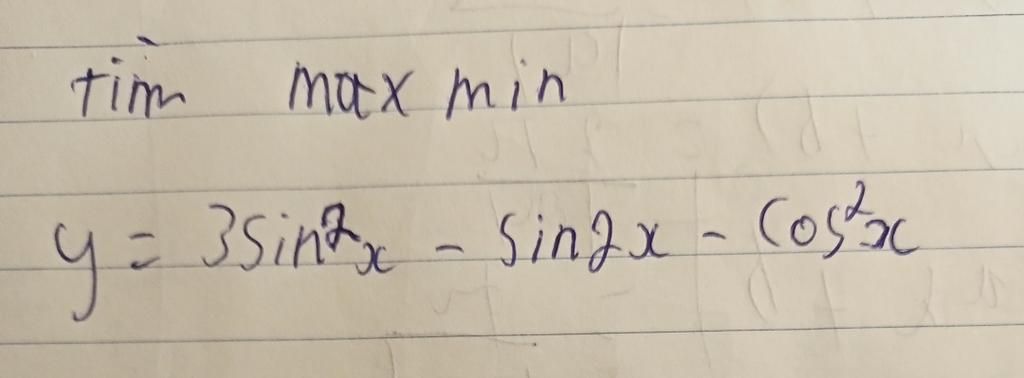 tìm max min
y = 3sin²x - sin2x - cos²x